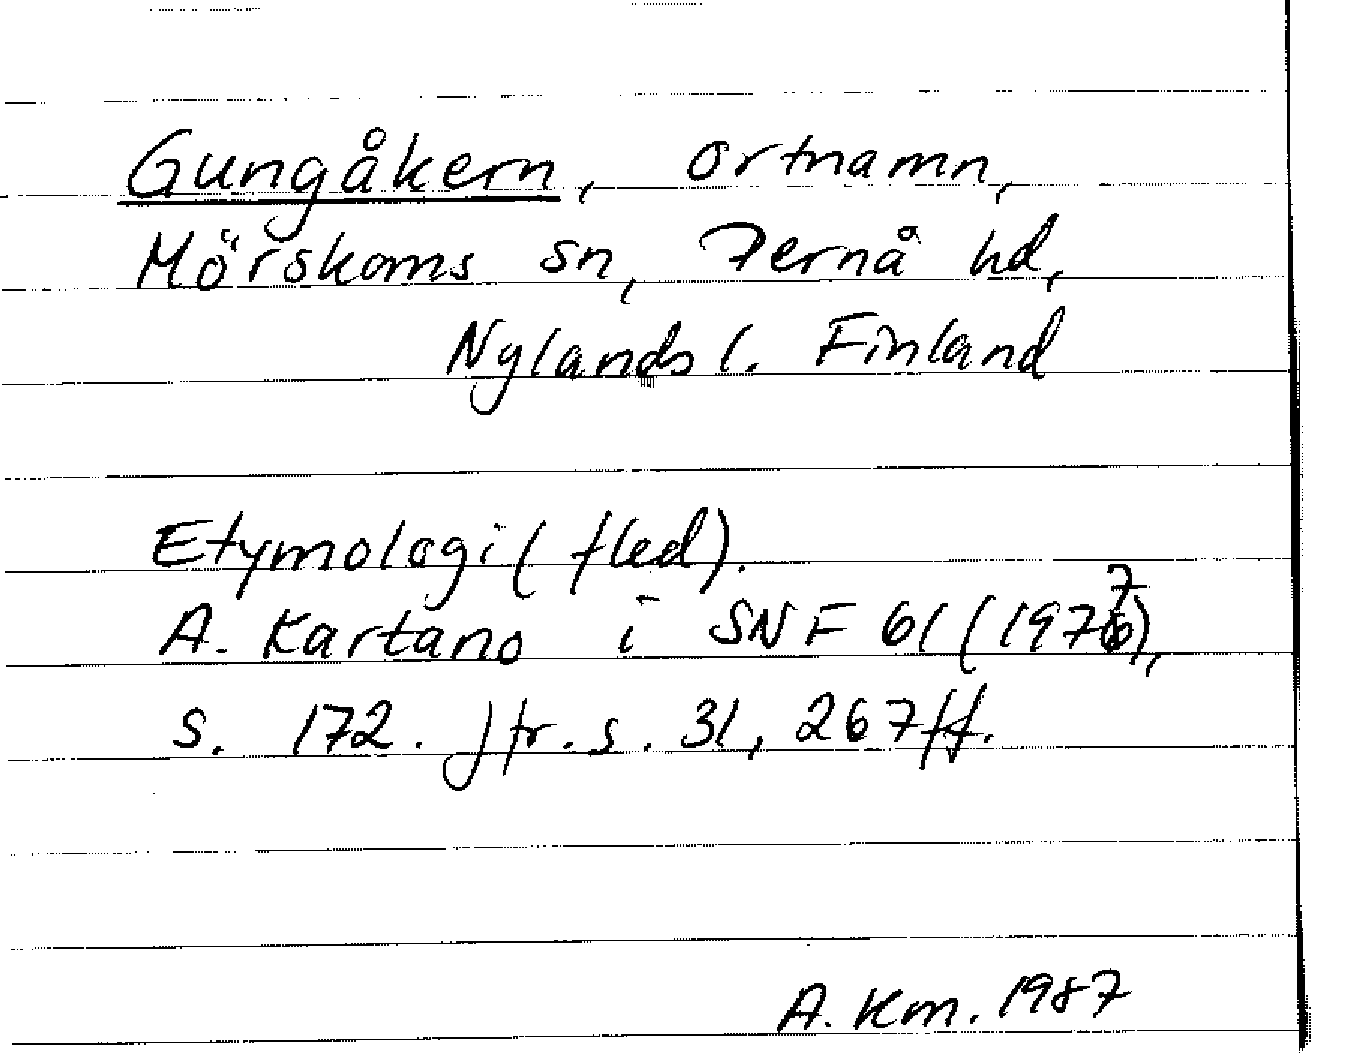 Gungåkern, ortnamn,
Mörskoms sn, Pernå hd,
Nylands l. Finland
Etymologi (fled).
A. Kartano i SNF 61 (1977),
s. 172. Jfr. s. 31, 267ff.
A. Km. 1987